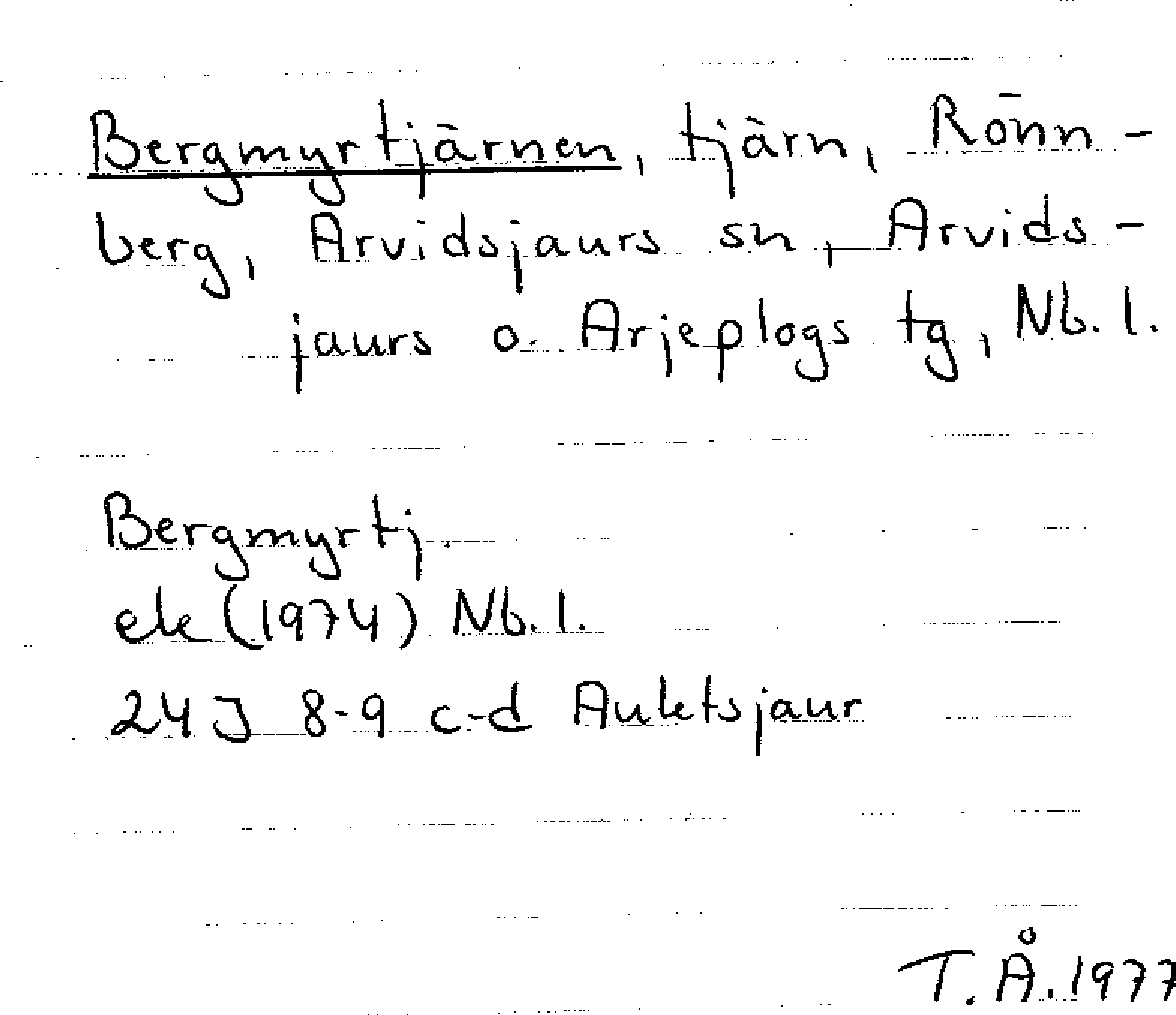 Bergmyrtjärnen, tjärn, Rönn-
berg, Arvidsjaurs sn, Arvids-
jaurs o. Arjeplogs tg, Nb. l.
Bergmyrtj.
ek (1974) Nb. l.
24J 8-9 c-d Auktsjaur
T.Å. 1977